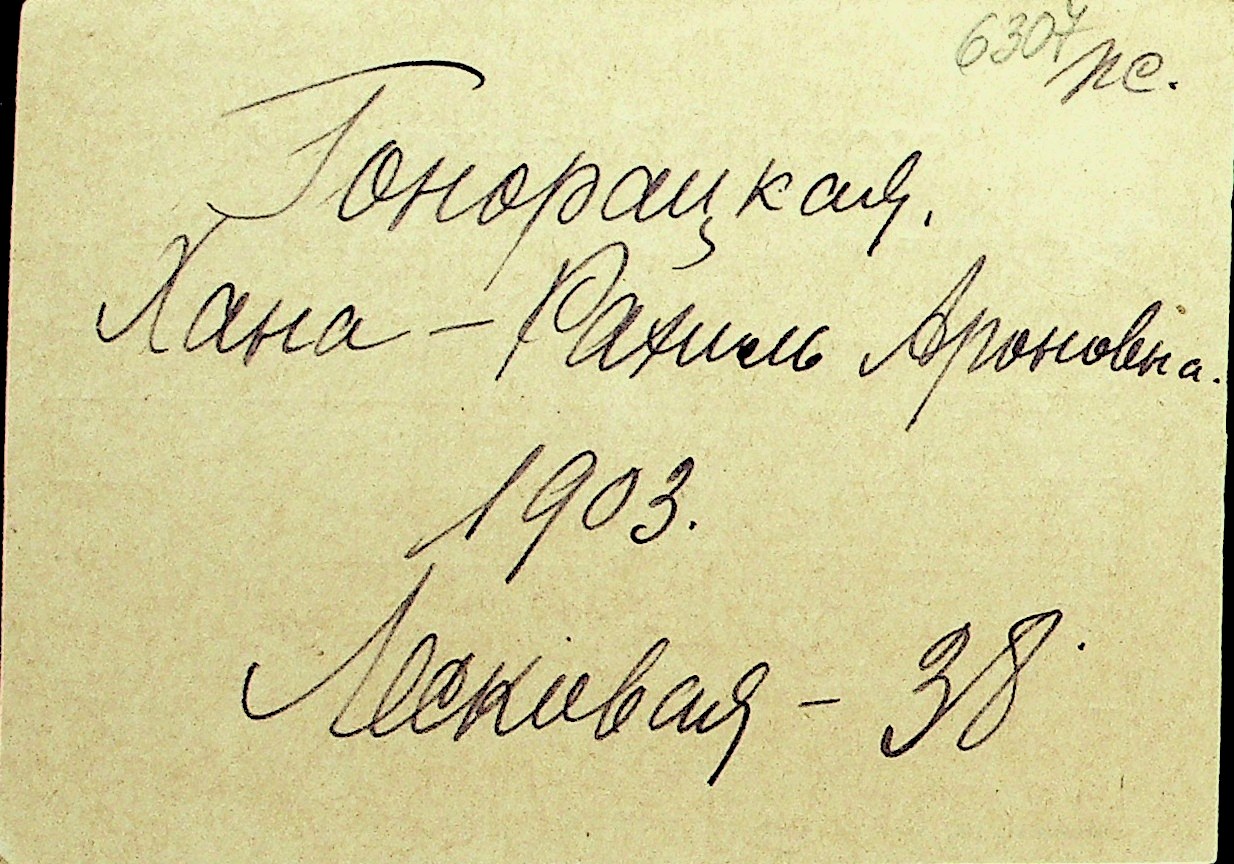 6307 пс.
Гонорацкая.
Хана - Рахиль Ароновна.
1903.
Лесковая - 38.